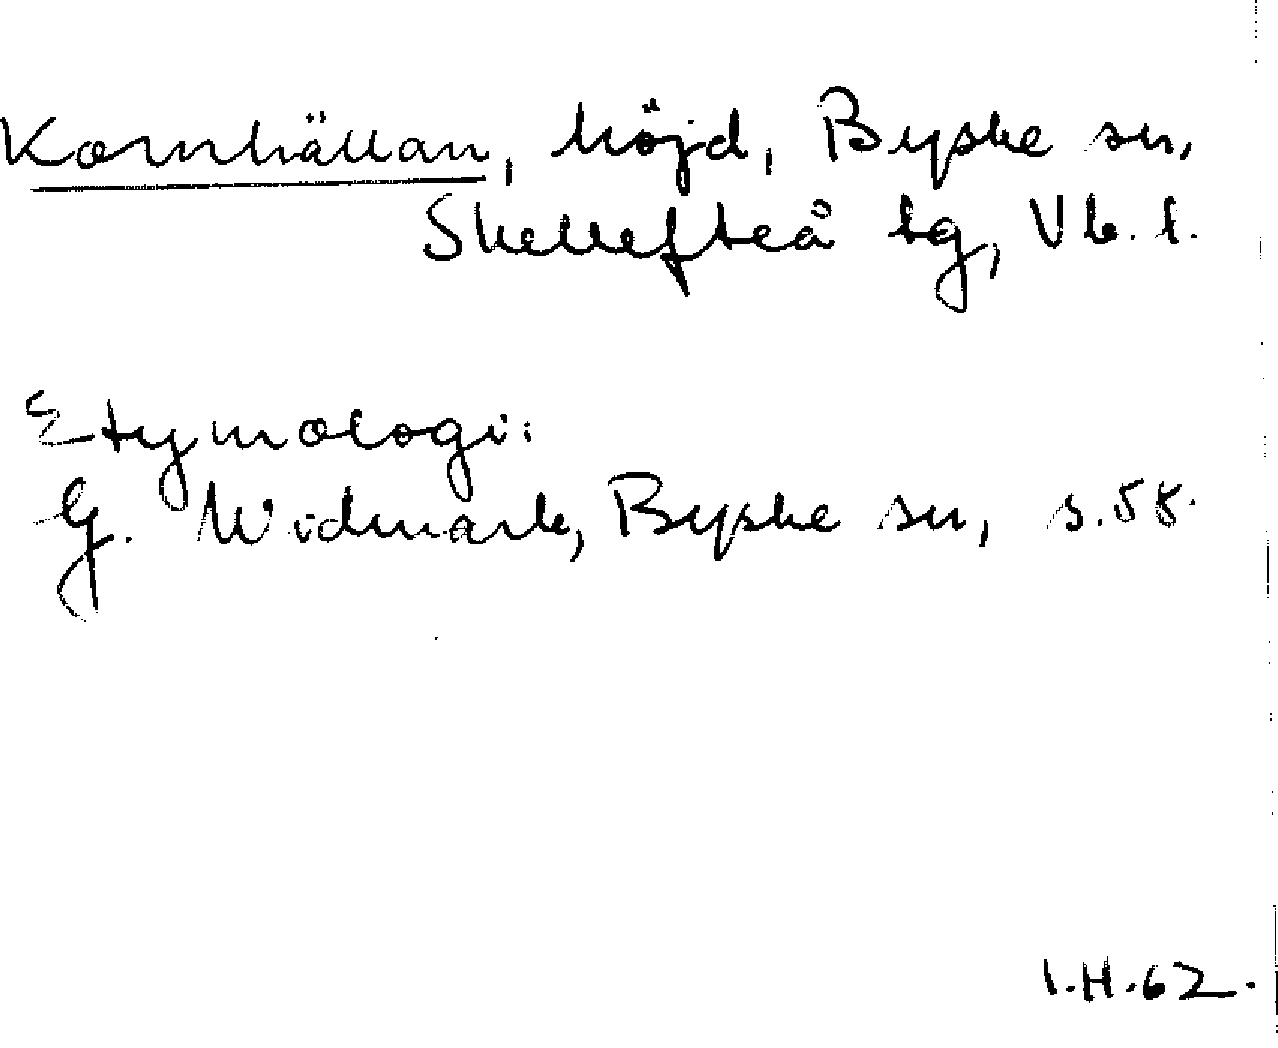 Kornhällan, höjd, Byske sn,
Skellefteå tg, Vb. l.
Etymologi:
G. Widmark, Byske sn, s. 58.
I.H.62.